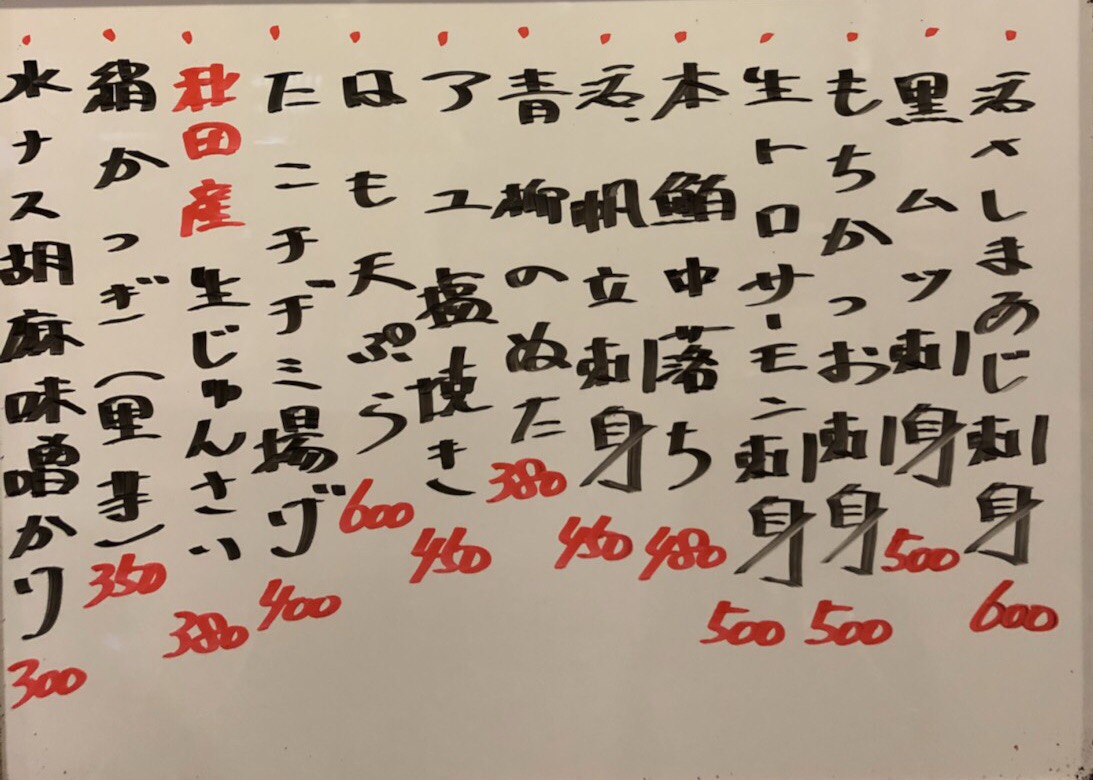 活〆しまあじ刺身 600
黒ムツ刺身 500
もちかつお刺身 500
生トロサーモン刺身 500
本鮪中落ち 480
活帆立刺身 450
青柳のぬた 380
アユ塩焼き 450
はも天ぷら 600
たこチヂミ揚げ 400
秋田産生じゅんさい 380
絹かつぎ(里芋) 350
水ナス胡麻味噌かけ 300